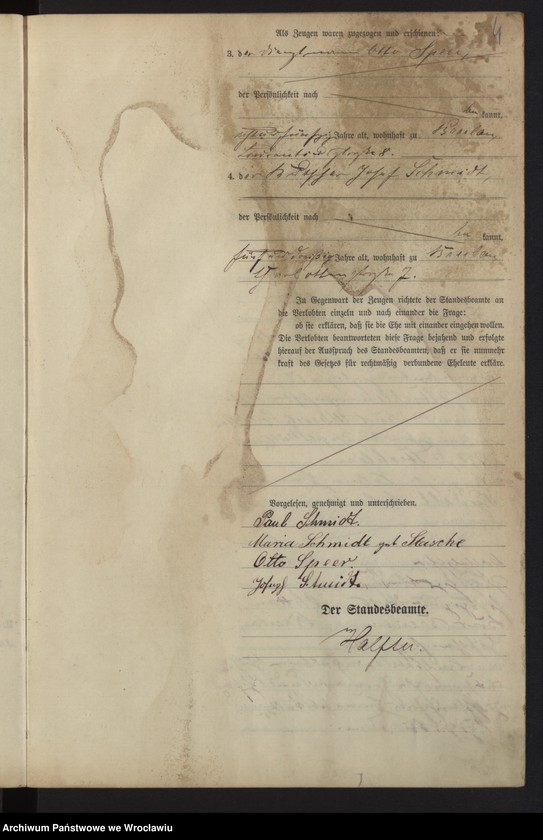 4
Als Zeugen waren zugezogen und erschienen:
3. der Dienstmann Otto Speer,
der Persönlichkeit nach
kannt,
Jahre alt, wohnhaft zu Breslau
4. der Kutscher Josef Schmidt,
der Persönlichkeit nach
kannt,
fünfunddreißig Jahre alt, wohnhaft zu Breslau
7.
In Gegenwart der Zeugen richtete der Standesbeamte an
die Verlobten einzeln und nach einander die Frage:
ob sie erklären, daß sie die Ehe mit einander eingehen wollen.
Die Verlobten beantworteten diese Frage bejahend und erfolgte
hierauf der Ausspruch des Standesbeamten, daß er sie nunmehr
kraft des Gesetzes für rechtmäßig verbundene Eheleute erkläre.
Vorgelesen, genehmigt und unterschrieben.
Paul Schmidt.
Maria Schmidt geb
Otto Speer.
Josef Schmidt.
Der Standesbeamte.
Archiwum Państwowe we Wrocławiu